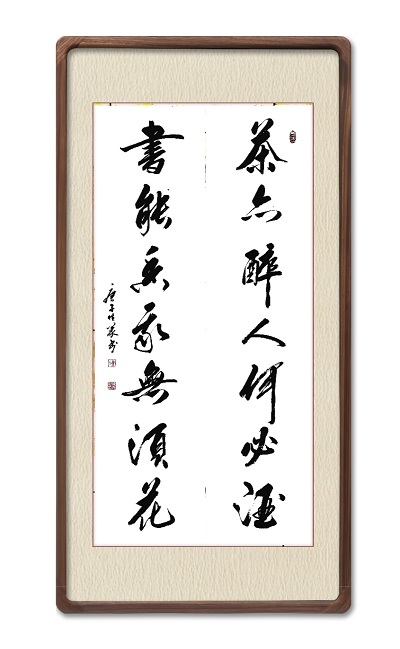 茶亦醉人何必酒
書能香我無須花
庚子